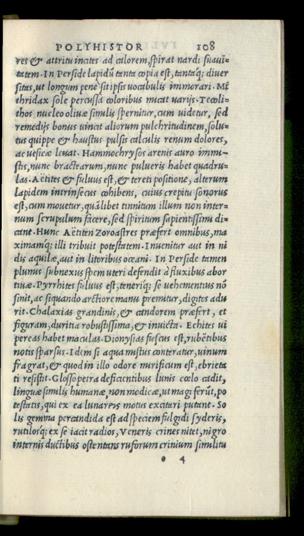 POLYHISTOR 108
res & attritu incites ad calorem, spirat nardi suaui=
tatem. In Perside lapidũ tanta copia est, tantaq́; diuer
sitas, ut longum penè sit ipsis uocabulis immorari. Mi
thridax sole percussa coloribus micat uarijs. Tecoli=
thos nucleo oliuæ similis spernitur, cum uidetur, sed
remedijs bonus uincit aliorum pulchritudinem, solu=
tus quippe & haustus pulsis calculis renum dolores,
ac uesicæ leuat. Hammochrysos arenis auro immi=
stis, nunc bractearum, nunc pulueris habet quadru=
las. Aëtites & fuluus est, & tereti positione, alterum
lapidem intrinsecus cohibens, cuius crepitu sonorus
est, cum mouetur, quãlibet tinnitum illum non inter=
num scrupulum facere, sed spiritum sapientissimi di=
cant. Hunc Aëtiten Zoroastres præfert omnibus, ma
ximamq́; illi tribuit potestatem. Inuenitur aut in ni
dis aquilæ, aut in litoribus oceani. In Perside tamen
plurimus subnexus spem uteri defendit à fluxibus abor
tiuæ. Pyrrhites fuluus est, teneriq́; se uehementius nõ
sinit, ac siquando arctiore manu premitur, digitos adu
rit. Chalazias grandinis, & candorem præfert, et
figuram, duritia robustissima, & inuicta. Echites ui
pereas habet maculas. Dionysias fuscus est, rubẽtibus
notis sparsus. Idem si aquæ mistus conteratur, uinum
fragrat, & quod in illo odore mirificum est, ebrieta
ti resistit. Glossopetra deficientibus lunis cœlo cadit,
linguæ similis humanæ, non modicæ, ut magi ferũt, po
testatis, qui ex ea lunares motus excitari putant. So
lis gemma percandida est ad speciem fulgidi syderis,
rutilosq́; ex se iacit radios, Veneris crines nitet, nigro
internis ductibus ostentans ruforum crinium similitu
* 4